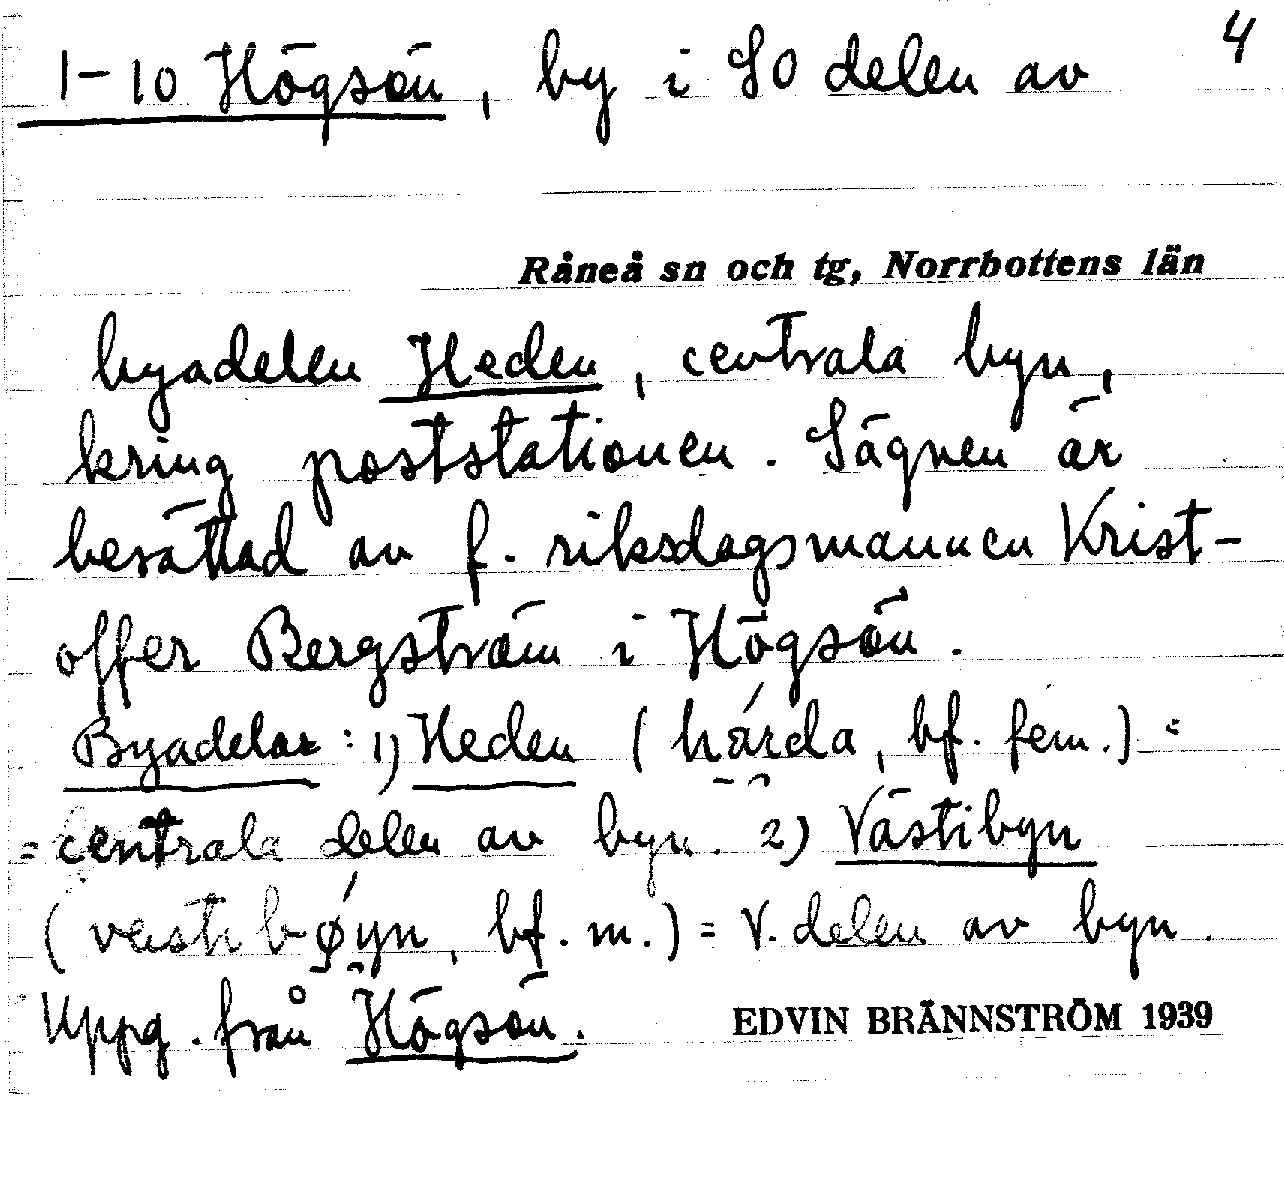 4
1-10 Högsön, by i SO delen av
Råneå sn och tg, Norrbottens län
byadelen Heden, centrala byn,
kring poststationen. Sägnen är
berättad av f. riksdagsmannen Krist-
offer Bergström i Högsön.
Byadelar: 1) Heden (hárda, bf. fem.) =
= centrala delen av byn. 2) Västibyn
(bf. m.) = V. delen av byn.
Uppg. från Högsön.
EDVIN BRÄNNSTRÖM 1939